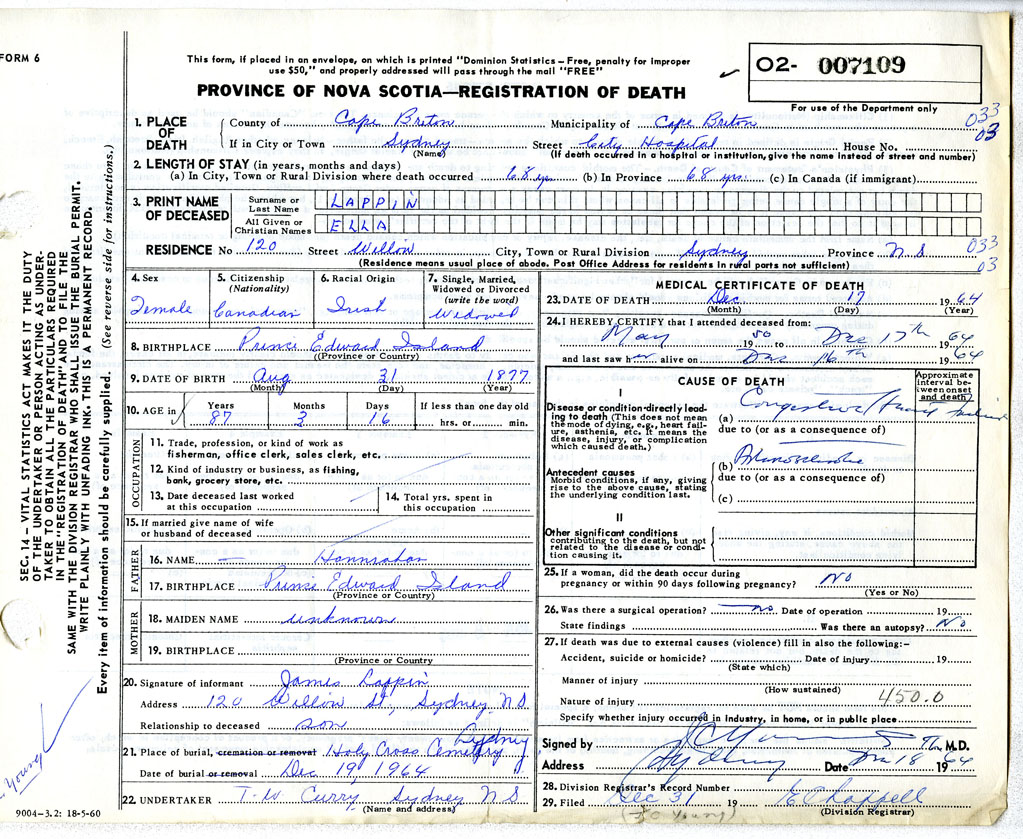 FORM 6
This form, if placed in an envelope, on which is printed "Dominion Statistics – Free, penalty for improper
use $50," and properly addressed will pass through the mail "FREE"
O2- 007109
PROVINCE OF NOVA SCOTIA—REGISTRATION OF DEATH
For use of the Department only
1. PLACE OF DEATH
County of Cape Breton Municipality of Cape Breton 033
If in City or Town Sydney Street City Hospital House No. 03
(Name) (If death occurred in a hospital or institution, give the name instead of street and number)
2. LENGTH OF STAY (in years, months and days)
(a) In City, Town or Rural Division where death occurred 68 yrs (b) In Province 68 yrs. (c) In Canada (if immigrant)
3. PRINT NAME OF DECEASED
Surname or Last Name LAPPIN
All Given or Christian Names ELLA
RESIDENCE No 120 Street Willow City, Town or Rural Division Sydney Province N S 033
(Residence means usual place of abode. Post Office Address for residents in rural parts not sufficient) 03
4. Sex
Female
5. Citizenship
(Nationality)
Canadian
6. Racial Origin
Irish
7. Single, Married,
Widowed or Divorced
(write the word)
Widowed
8. BIRTHPLACE Prince Edward Island
(Province or Country)
9. DATE OF BIRTH Aug 31 1877
(Month) (Day) (Year)
10. AGE in
Years Months Days If less than one day old
87 3 16 hrs. or min.
OCCUPATION
11. Trade, profession, or kind of work as
fisherman, office clerk, sales clerk, etc.
12. Kind of industry or business, as fishing,
bank, grocery store, etc.
13. Date deceased last worked
at this occupation
14. Total yrs. spent in
this occupation
15. If married give name of wife
or husband of deceased
FATHER
16. NAME — Hannrahan
17. BIRTHPLACE Prince Edward Island
(Province or Country)
MOTHER
18. MAIDEN NAME unknown
19. BIRTHPLACE
(Province or Country)
20. Signature of informant James Lappin
Address 120 Willow St, Sydney NS
Relationship to deceased son
21. Place of burial, cremation or removal Holy Cross Cemetery Sydney
Date of burial or removal Dec 19, 1964
22. UNDERTAKER T. W. Curry Sydney N S
(Name and address)
9004-3.2: 18-5-60
MEDICAL CERTIFICATE OF DEATH
23. DATE OF DEATH Dec 17 1964
(Month) (Day) (Year)
24. I HEREBY CERTIFY that I attended deceased from:
May 1950 to Dec 17th 1964
and last saw her alive on Dec 16th 1964
CAUSE OF DEATH
Approximate
interval be-
tween onset
and death
I
Disease or condition directly lead-
ing to death (This does not mean
the mode of dying, e.g., heart fail-
ure, asthenia, etc. It means the
disease, injury, or complication
which caused death.)
(a) Congestive Heart
due to (or as a consequence of)
Antecedent causes
Morbid conditions, if any, giving
rise to the above cause, stating
the underlying condition last.
(b)
due to (or as a consequence of)
(c)
II
Other significant conditions
contributing to the death, but not
related to the disease or condi-
tion causing it.
25. If a woman, did the death occur during
pregnancy or within 90 days following pregnancy? No
(Yes or No)
26. Was there a surgical operation? no. Date of operation 19
State findings Was there an autopsy? No
27. If death was due to external causes (violence) fill in also the following:–
Accident, suicide or homicide? Date of injury 19
(State which)
Manner of injury
(How sustained)
Nature of injury 450.0
Specify whether injury occurred in industry, in home, or in public place
Signed by M.D.
Address Sydney Date Dec 18 1964
28. Division Registrar's Record Number
29. Filed Dec 31 19 E Chappell
(Division Registrar)
SEC. 14 – VITAL STATISTICS ACT MAKES IT THE DUTY
OF THE UNDERTAKER OR PERSON ACTING AS UNDER-
TAKER TO OBTAIN ALL THE PARTICULARS REQUIRED
IN THE "REGISTRATION OF DEATH" AND TO FILE THE
SAME WITH THE DIVISION REGISTRAR WHO SHALL ISSUE THE BURIAL PERMIT.
WRITE PLAINLY WITH UNFADING INK. THIS IS A PERMANENT RECORD.
Every item of information should be carefully supplied. (See reverse side for instructions.)